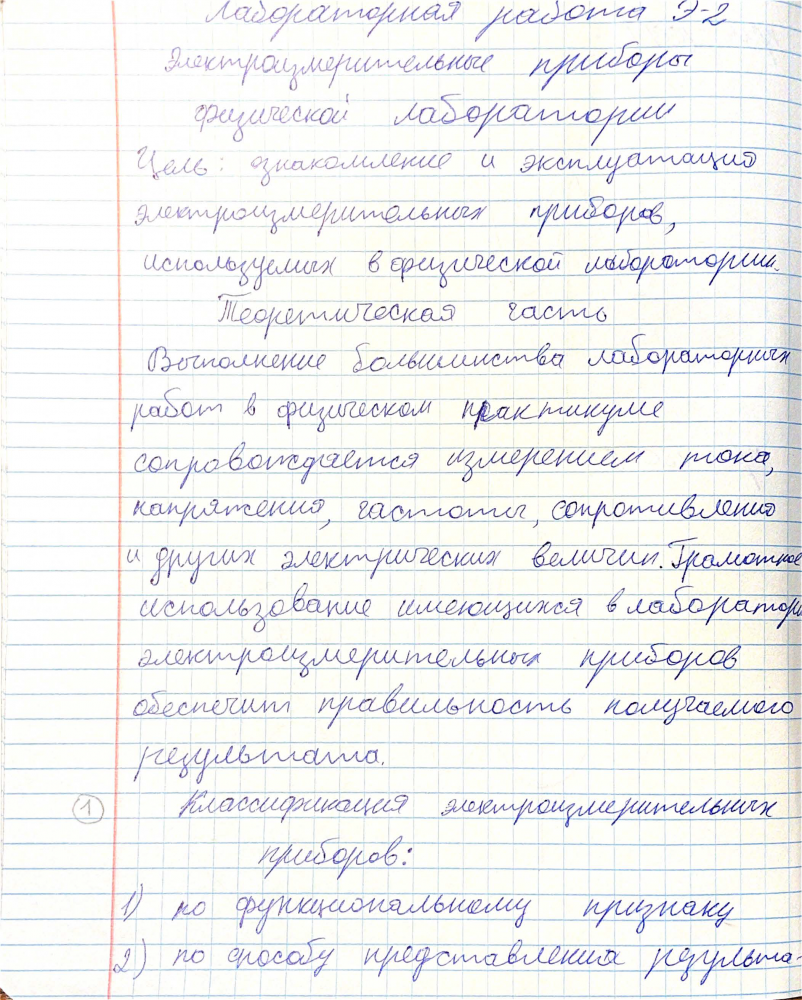 Лабораторная работа Э-2
Электроизмерительные приборы
физической лаборатории
Цель: ознакомление и эксплуатация
электроизмерительных приборов,
используемых в физической лаборатории.
Теоретическая часть
Выполнение большинства лабораторных
работ в физическом практикуме
сопровождается измерением тока,
напряжения, частоты, сопротивления
и других электрических величин. Грамотное
использование имеющихся в лаборатори
электроизмерительных приборов
обеспечит правильность получаемого
результата.
1 Классификация электроизмерительных
приборов:
1) по функциональному признаку
2) по способу представления результа-